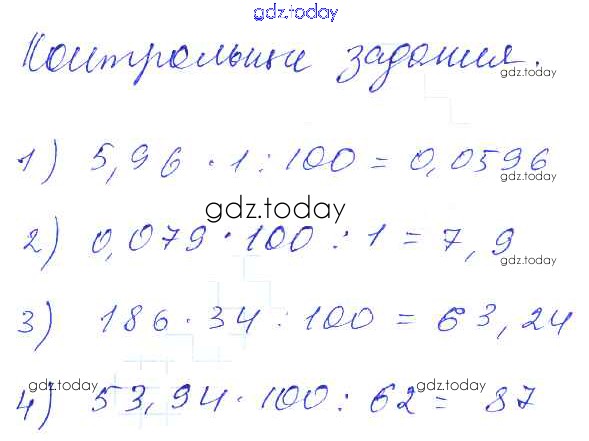 gdz.today
Контрольные задания.
gdz.today
1) 5,96 · 1 : 100 = 0,0596
gdz.today
gdz.today
gdz.today
2) 0,079 · 100 : 1 = 7,9
gdz.today
3) 186 · 34 : 100 = 63,24
gdz.today
gdz.today
4) 53,94 · 100 : 62 = 87